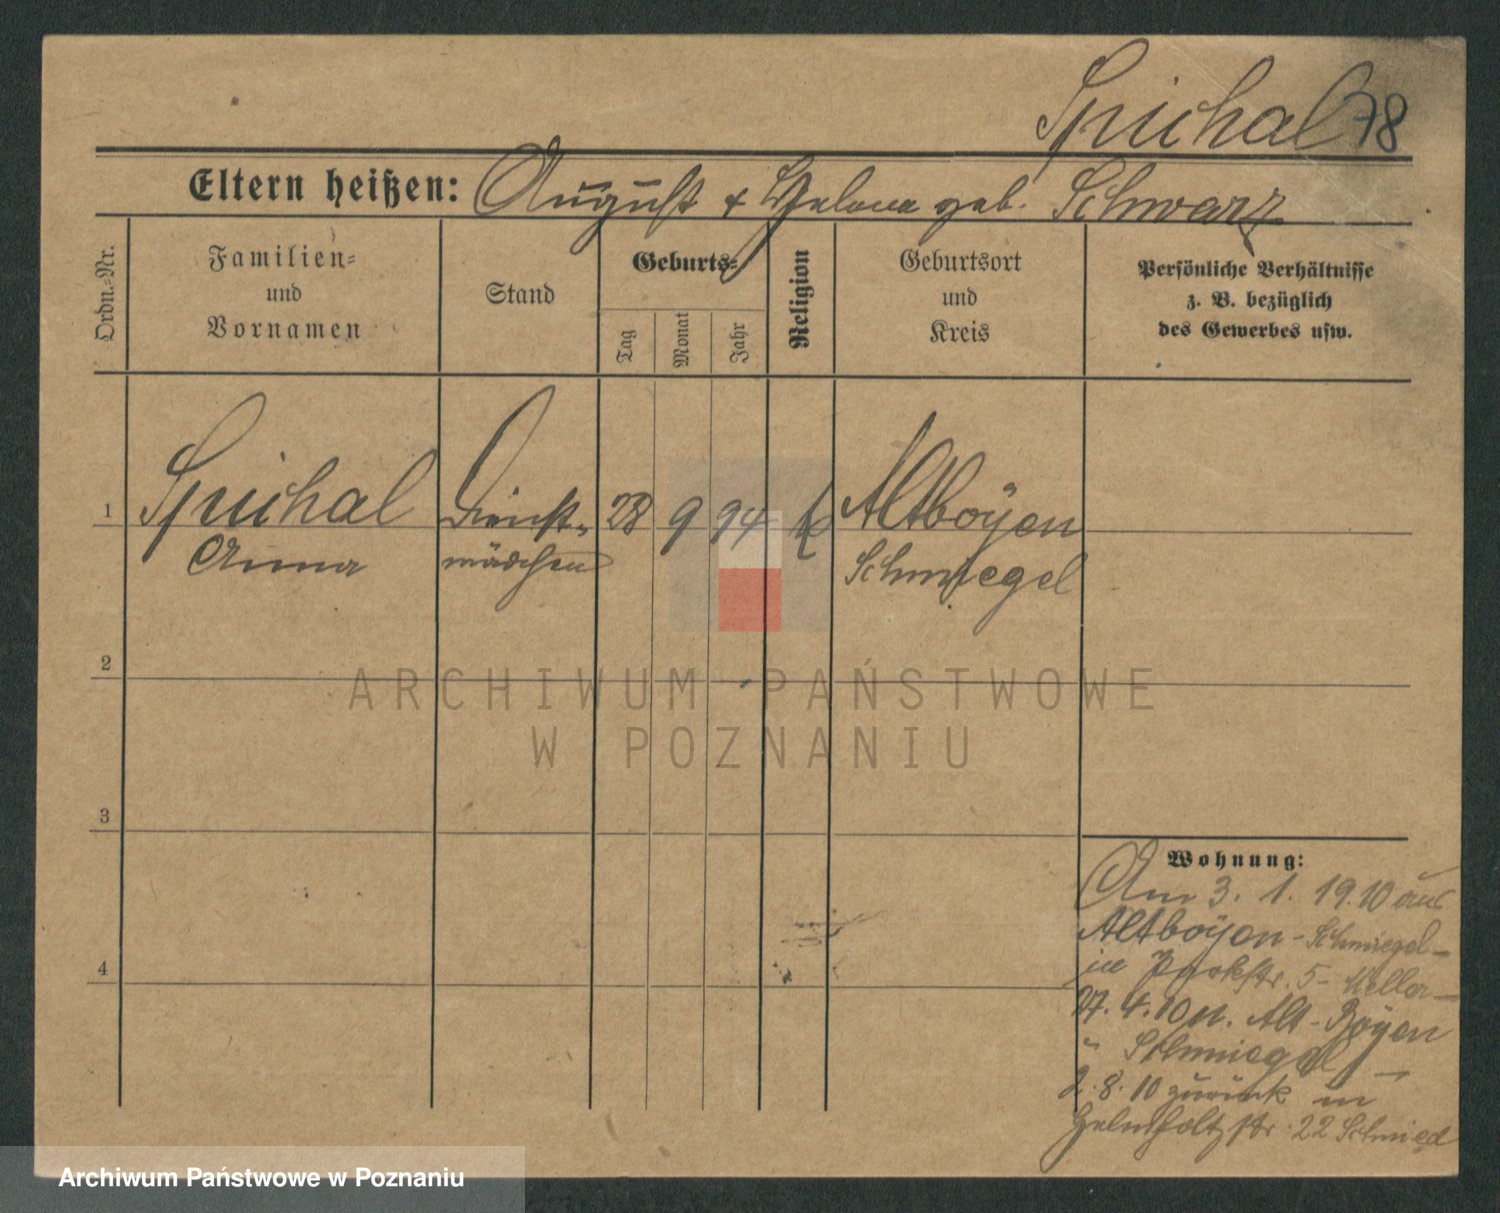 Spichal 78
Eltern heißen: August & Helena geb. Schwarz
Ordn.-Nr.
Familien-
und
Vornamen
Stand
Geburts-
Tag
Monat
Jahr
Religion
Geburtsort
und
Kreis
Persönliche Verhältnisse
z. B. bezüglich
des Gewerbes usw.
1 Spichal Dienst- 28 9 94 k Altboyen
Anna mädchen Schmiegel
2
3
4
Wohnung:
Am 3. 1. 1910 aus
Altboyen - Schmiegel -
in Parkstr. 5 -
27. 4. 10 n. Alt-Boyen
Schmiegel -
2. 8. 10 zurück in
Helmholtzstr. 22 Schmied
ARCHIWUM PAŃSTWOWE
W POZNANIU
Archiwum Państwowe w Poznaniu